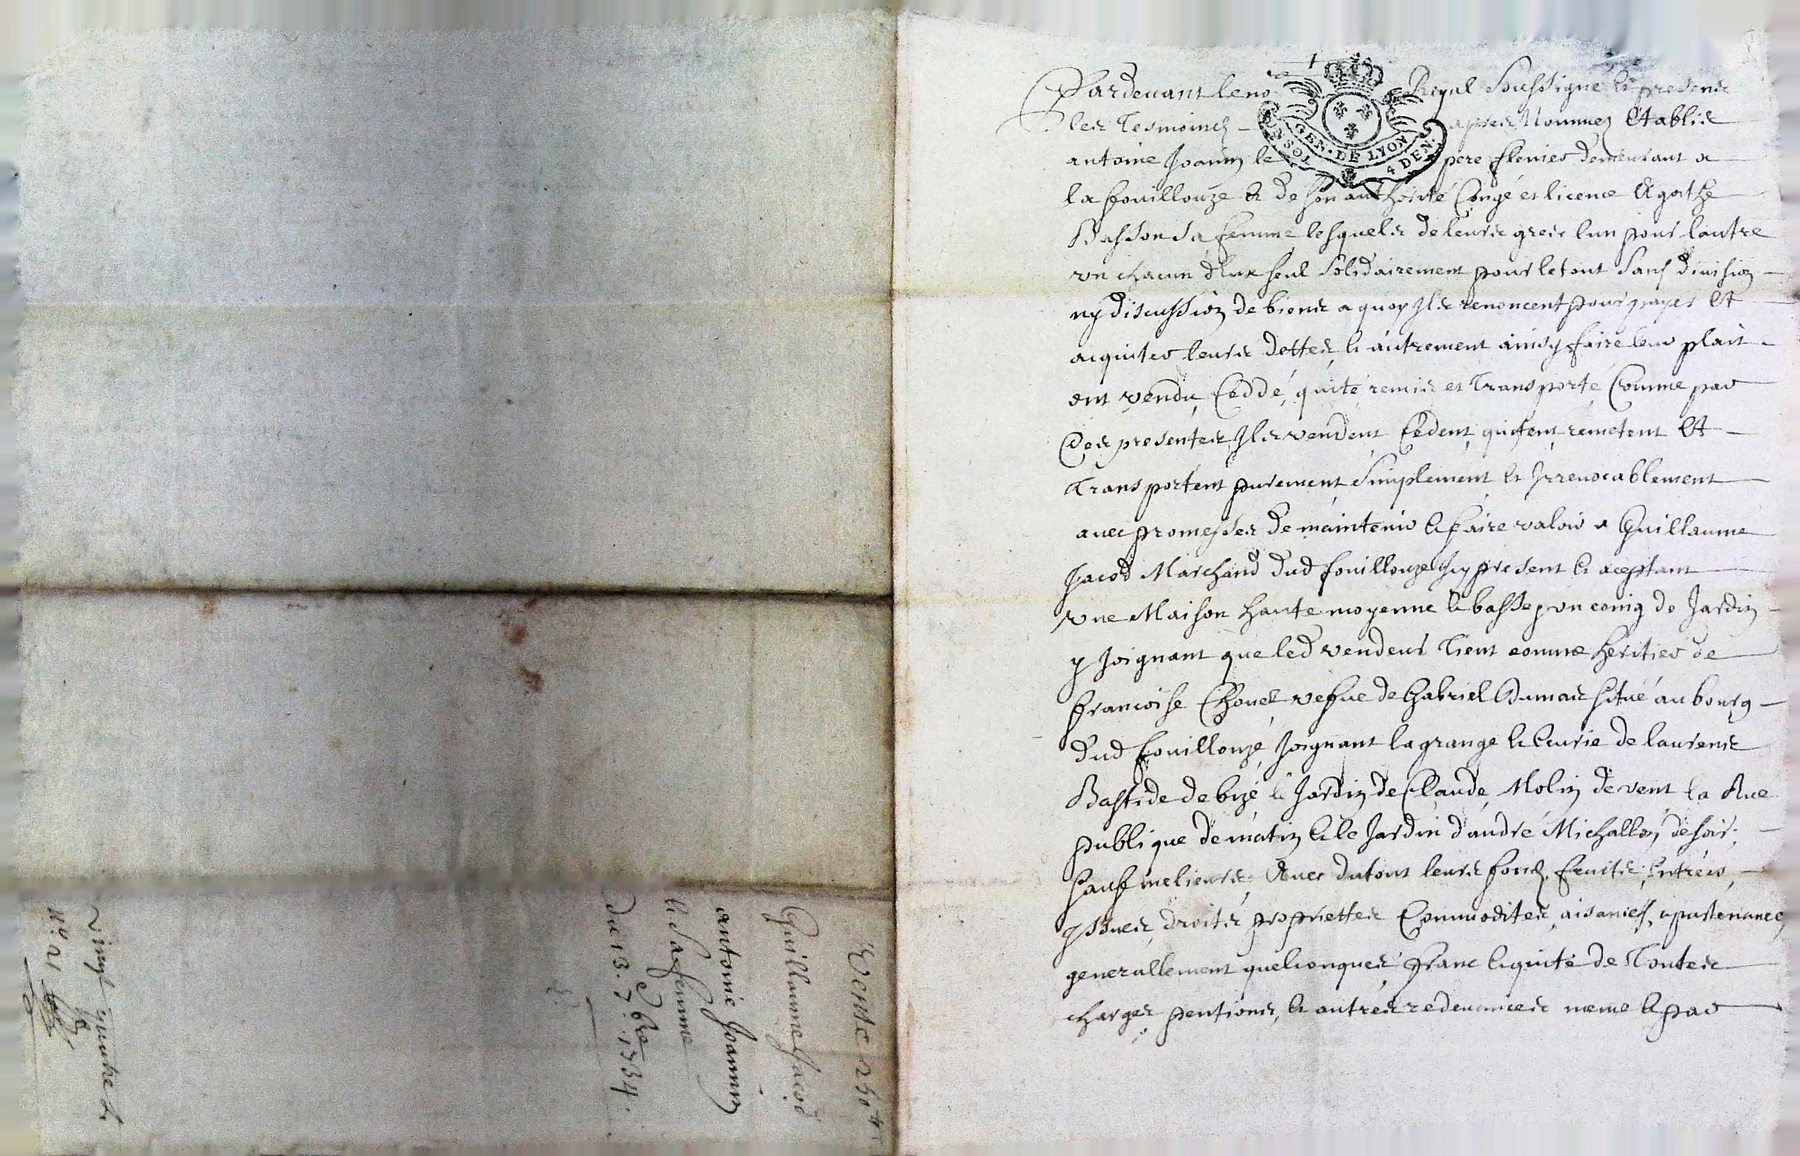 Pardevant le no[tai]re Royal soussigne & presens
les tesmoins apres nommes Etablis
antoine Joanin le pere fermier demeurant a
la fouillouze & de son authorité Congé et licence Agathe
Basson sa femme lesquels de leurs gres lun pour lautre
un chacun d'eux seul solidairement pour le tout sans division
ny discussion de biens a quoy Ils renoncent pour payer Et
acquiter leurs dettes & autrement ainsy faire leur plait
ont vendu Ceddé, quité remis et transporté Comme par
Ces presentes Ils vendent Cedent, quitent remetent Et
transportent purement simplement & Irrevocablement
avec promesses de maintenir & faire valoir a Guillaume
Jacod Marchand dud fouillouze Icy present & aceptant
une Maison haute moyenne & basse, un coing de Jardin
y Joignant que led vendeur tient comme heritier de
francoise Chouet vefue de Gabriel Dumas situé au bourg
dud fouillouze, Joignant la grange & Curie de laurens
Bastide de bize le Jardin de Claude Molin de vent la Rue
publique de matin & le Jardin d'andré Michallon, de soir,
sauf melieurs, Avec du tout leurs fonds, fruits, entrées,
yssues, droits, proprietes Commodites, aisances, apartenance,
generallement quelconques franc & quité de Toutes
charges pentions, & autres redevances meme & par
GEN. DE LYON
4 DEN
Vente 250 tt
Guillaume Jacod
antoine Joannin
& sa femme
du 13 7bre 1734.
vingt quatre
n° 21